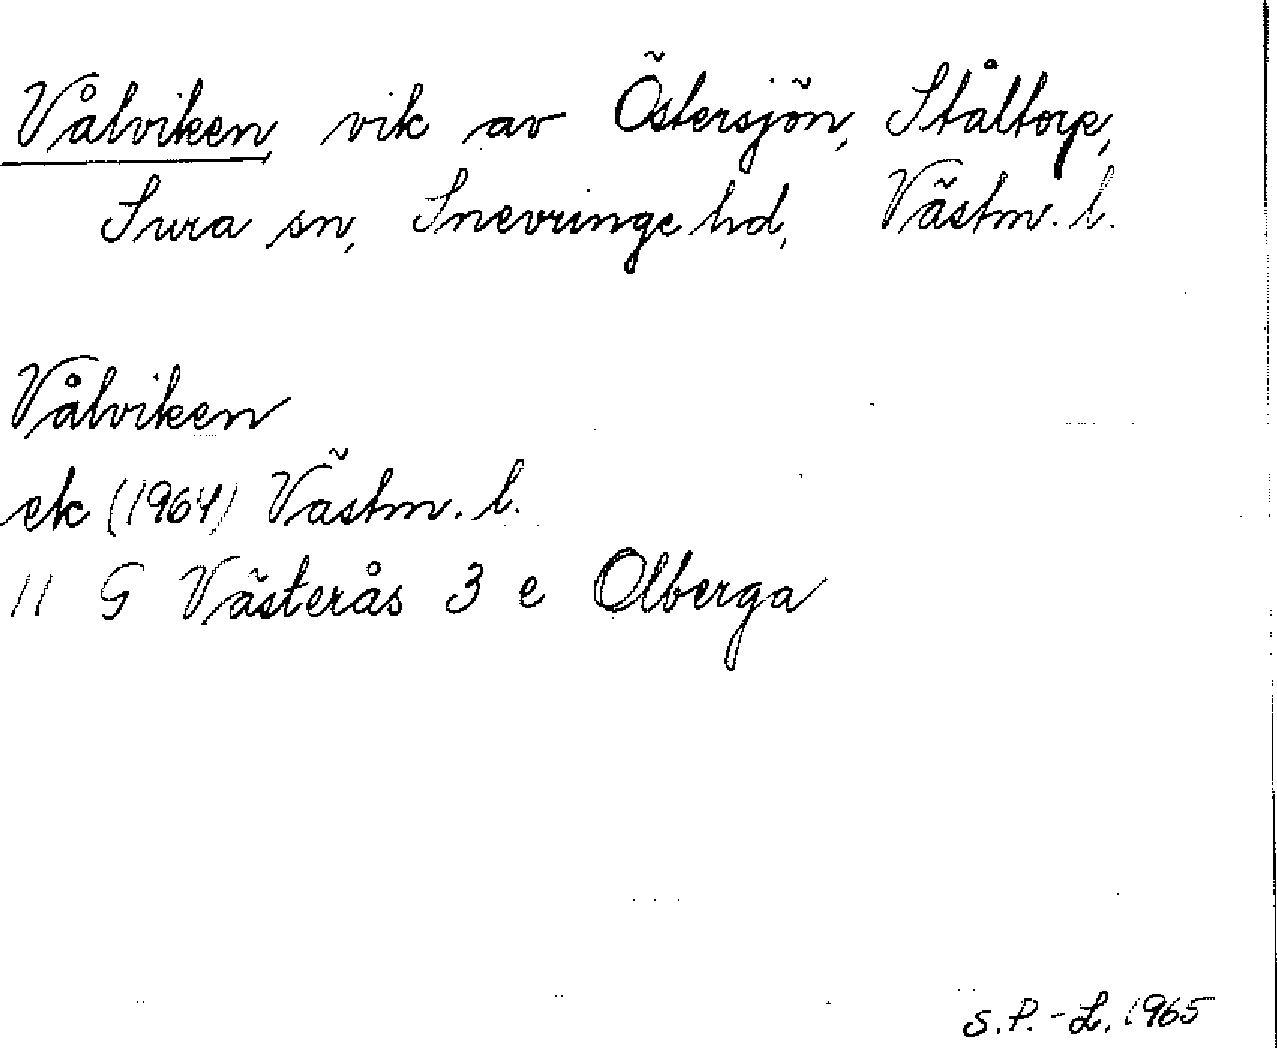 Vålviken, vik av Östersjön, Ståltorp,
Sura sn, Snevringe hd, Västm. l.
Vålviken
ek (1964) Västm. l.
11 G Västerås 3 e Olberga
S.P.-L. 1965